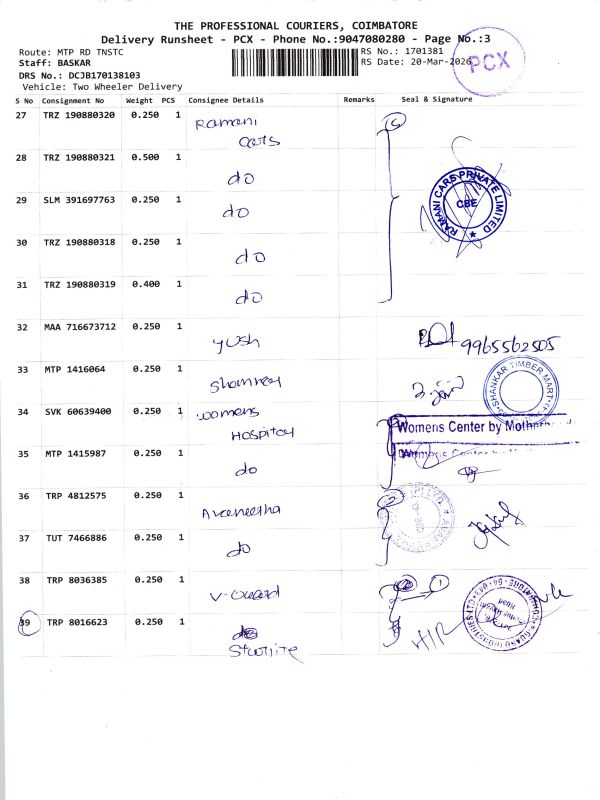 THE PROFESSIONAL COURIERS, COIMBATORE
Delivery Runsheet - PCX - Phone No.:9047080280 - Page No.:3
Route: MTP RD TNSTC
RS No.: 1701381
Staff: BASKAR
RS Date: 20-Mar-2026
PCX
DRS No.: DCJB170138103
Vehicle: Two Wheeler Delivery
S No Consignment No Weight PCS Consignee Details Remarks Seal & Signature
27 TRZ 190880320 0.250 1 Ramani cars
5
28 TRZ 190880321 0.500 1 do
RAMANI CARS PRIVATE LIMITED
CBE
29 SLM 391697763 0.250 1 do
30 TRZ 190880318 0.250 1 do
31 TRZ 190880319 0.400 1 do
32 MAA 716673712 0.250 1 yush
9965562505
33 MTP 1416064 0.250 1
SHANKAR TIMBER MART
34 SVK 60639400 0.250 1 womens Hospital
Womens Center by
35 MTP 1415987 0.250 1 do
Womens Center
36 TRP 4812575 0.250 1
37 TUT 7466886 0.250 1 do
38 TRP 8036385 0.250 1 V-Guard
1
39 TRP 8016623 0.250 1
GUARD INDUSTRIES LTD